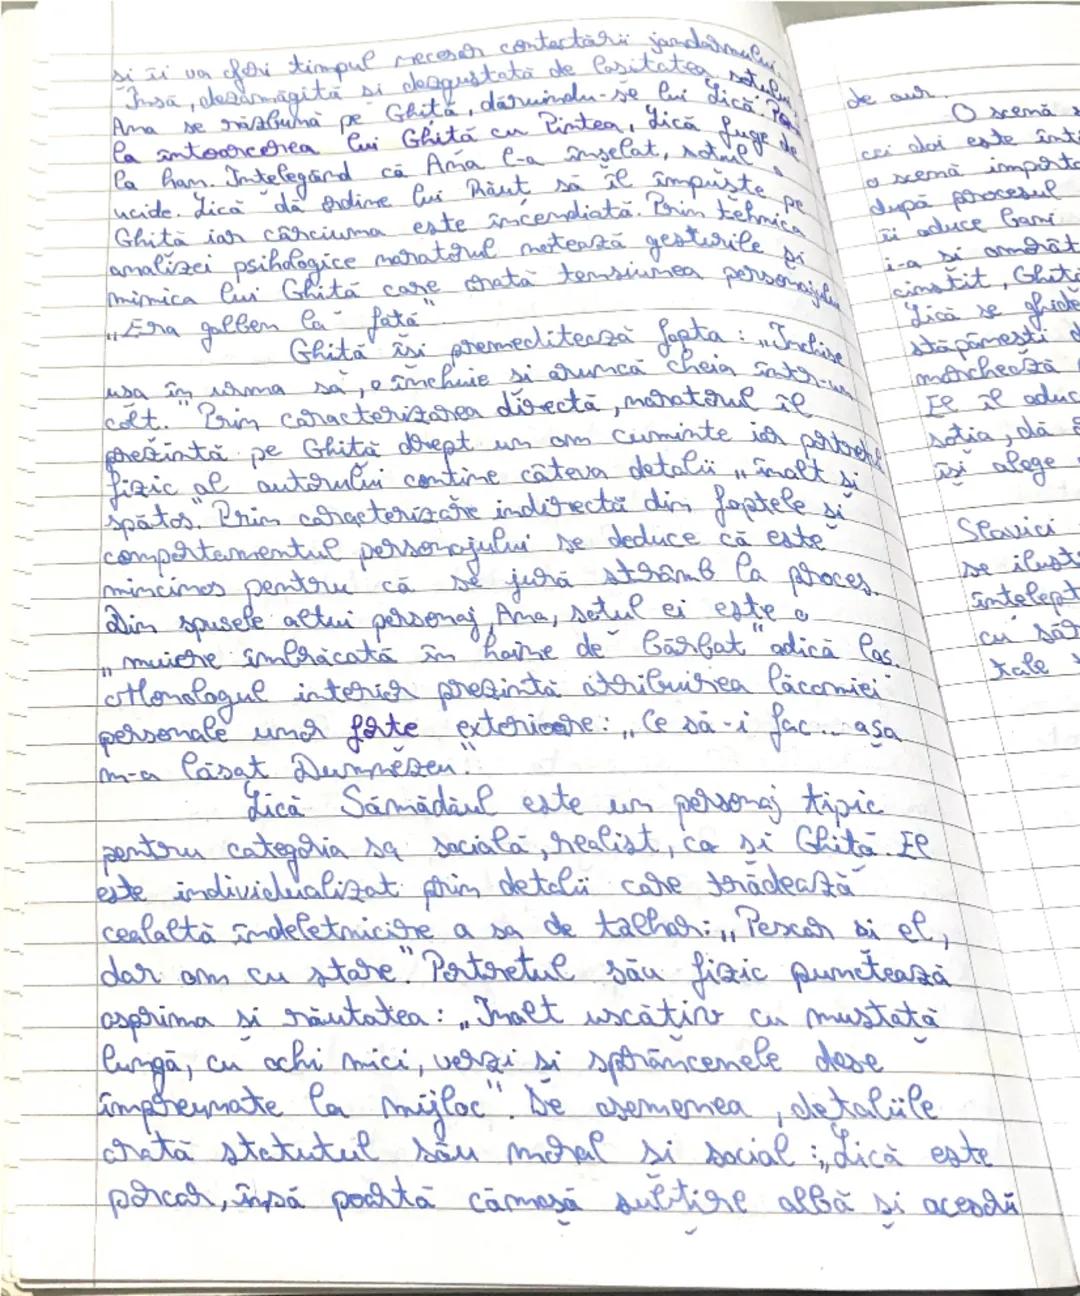 si îi va oferi timpul necesar contactării jandarmului.
Însă, dezamăgită si dezgustată de lasitatea sotului,
Ana se răzbună pe Ghită, dăruindu-se lui Lică.
la întoarcerea lui Ghită cu Pintea, Lică fuge de
la han. Intelegând că Ana l-a înselat, sotul o
ucide. Lică dă ordine lui Răut să îl împuște pe
Ghită iar cârciuma este incendiată. Prin tehnica
analizei psihologice naratorul notează gesturile si
mimica lui Ghită care arată tensiunea personajului
„Era galben la față"
Ghită îsi premeditează fapta: „Închise
usa în urma sa, o închuie si aruncă cheia într-un
colt." Prin caracterizarea directă, naratorul îl
prezintă pe Ghită drept un om cuminte iar portretul
fizic al autorului contine câteva detalii „înalt si
spătos." Prin caracterizare indirectă din faptele si
comportamentul personajului se deduce că este
mincinos pentru că se jură strâmb la proces.
Din spusele altui personaj, Ana, sotul ei este o
„muiere îmbrăcată în haine de bărbat" adică las.
Monologul interior prezintă atribuirea lăcomiei
personale unor forte exterioare: „Ce să-i fac... așa
m-a lăsat Dumnezeu."
Lică Sămădăul este un personaj tipic
pentru categoria sa socială, realist, ca si Ghită. El
este individualizat prin detalii care trădează
cealaltă îndeletnicire a sa de talhar: „Porcar si el,
dar om cu stare." Portretul său fizic punctează
asprima si răutatea: „Inalt uscătiv cu mustată
lungă, cu ochi mici, verzi si sprâncenele dese
împreunate la mijloc". De asemenea, detaliile
arată statutul său moral si social: „Lică este
porcar, însă poartă cămașă subtire albă și
de aur.
O scemă
cei doi este
o scemă
după procesul
îi aduce bani
i-a si
cinstit,
Lică se
stăpânesti
marchează
El îl aduc
sotia, dă
îsi alege
Slavici
se
cu
tale